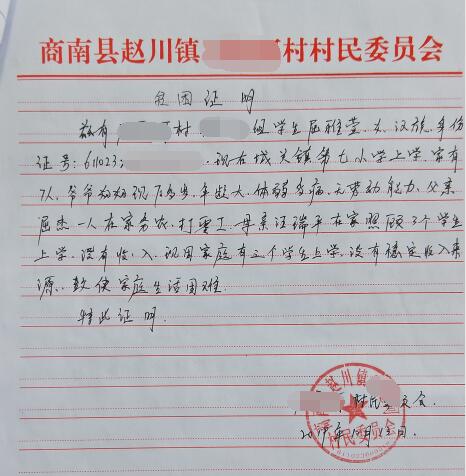 商南县赵川镇 村村民委员会
贫困证明
兹有 村 组学生屈雅莹.女.汉族.身份
证号:611023 .现在城关镇第七小学上学家有
7人,爷爷奶奶现 多岁,年龄大.体弱多病.无劳动能力,父亲
屈杰一人在家务农,打零工.母亲汪瑞平在家照顾3个学生
上学,没有收入.现因家庭有三个学生上学.没有稳定收入来
源.致使家庭生活困难.
特此证明.
村民委员会.
赵川镇
村民委员会